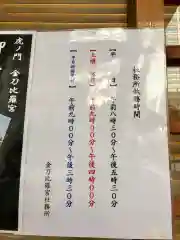 社務所執務時間
【平日】
午前八時三〇分〜午後五時三〇分
【土曜
午前九時〇〇分〜午後四時〇〇分
午前九時〇〇分〜午後三時三〇分
金刀比羅宮社務所
虎ノ門 金刀比羅宮